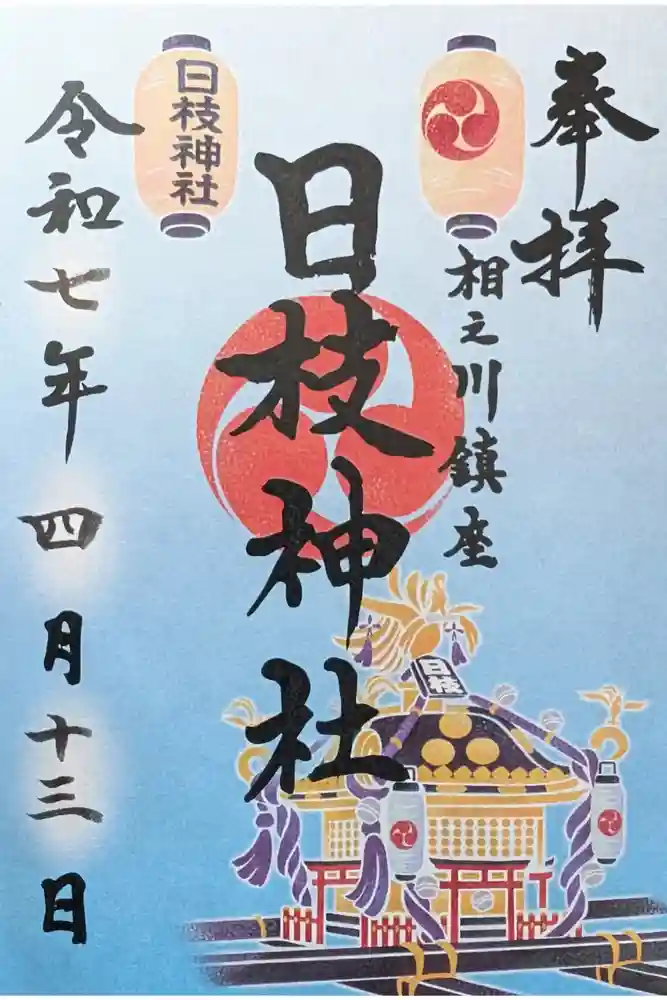 奉拝
相之川鎮座
日枝神社
日枝神社
日枝
令和七年四月十三日